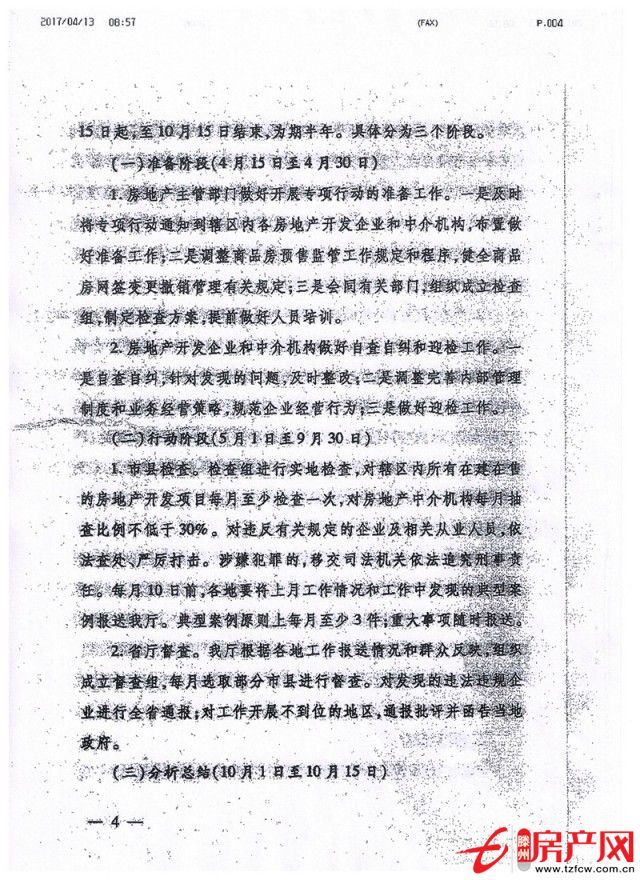 2017/04/13 08:57 (FAX) P.004
15日起,至10月15日结束,为期半年。具体分为三个阶段。
(一)准备阶段(4月15日至4月30日)
1.房地产主管部门做好开展专项行动的准备工作。一是及时
将专项行动通知到辖区内各房地产开发企业和中介机构,布置做
好准备工作;二是调整商品房预售监管工作规定和程序,健全商品
房网签变更撤销管理有关规定;三是会同有关部门,组织成立检查
组,制定检查方案,提前做好人员培训。
2.房地产开发企业和中介机构做好自查自纠和迎检工作。一
是自查自纠,针对发现的问题,及时整改;二是调整完善内部管理
制度和业务经营策略,规范企业经营行为;三是做好迎检工作。
(二)行动阶段(5月1日至9月30日)
1.市县检查。检查组进行实地检查,对辖区内所有在建在售
的房地产开发项目每月至少检查一次,对房地产中介机构每月抽
查比例不低于30%。对违反有关规定的企业及相关从业人员,依
法查处、严厉打击。涉嫌犯罪的,移交司法机关依法追究刑事责
任。每月10日前,各地要将上月工作情况和工作中发现的典型案
例报送我厅。典型案例原则上每月至少3件;重大事项随时报送。
2.省厅督查。我厅根据各地工作报送情况和群众反映,组织
成立督查组,每月选取部分市县进行督查。对发现的违法违规企
业进行全省通报;对工作开展不到位的地区,通报批评并函告当地
政府。
(三)分析总结(10月1日至10月15日)
— 4 —
滕州房产网
www.tzfcw.com.cn